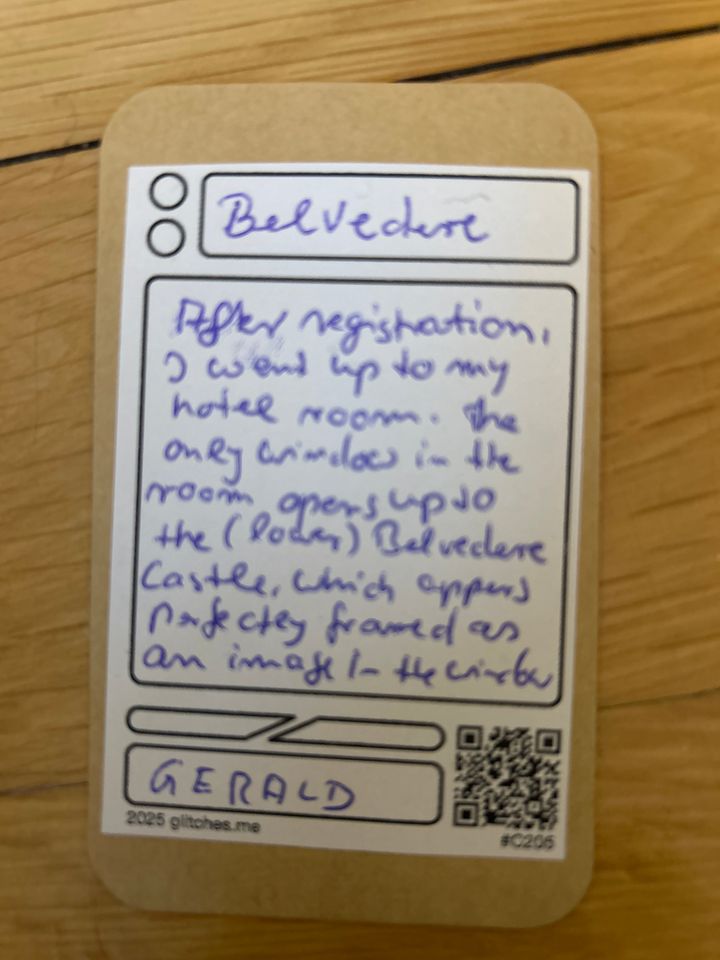 Belvedere
After registration,
I went up to my
hotel room. The
only window in the
room opens up to
the (lower) Belvedere
Castle, which appers
perfectly framed as
an image in the window
GERALD
2025 glitches.me
#C205